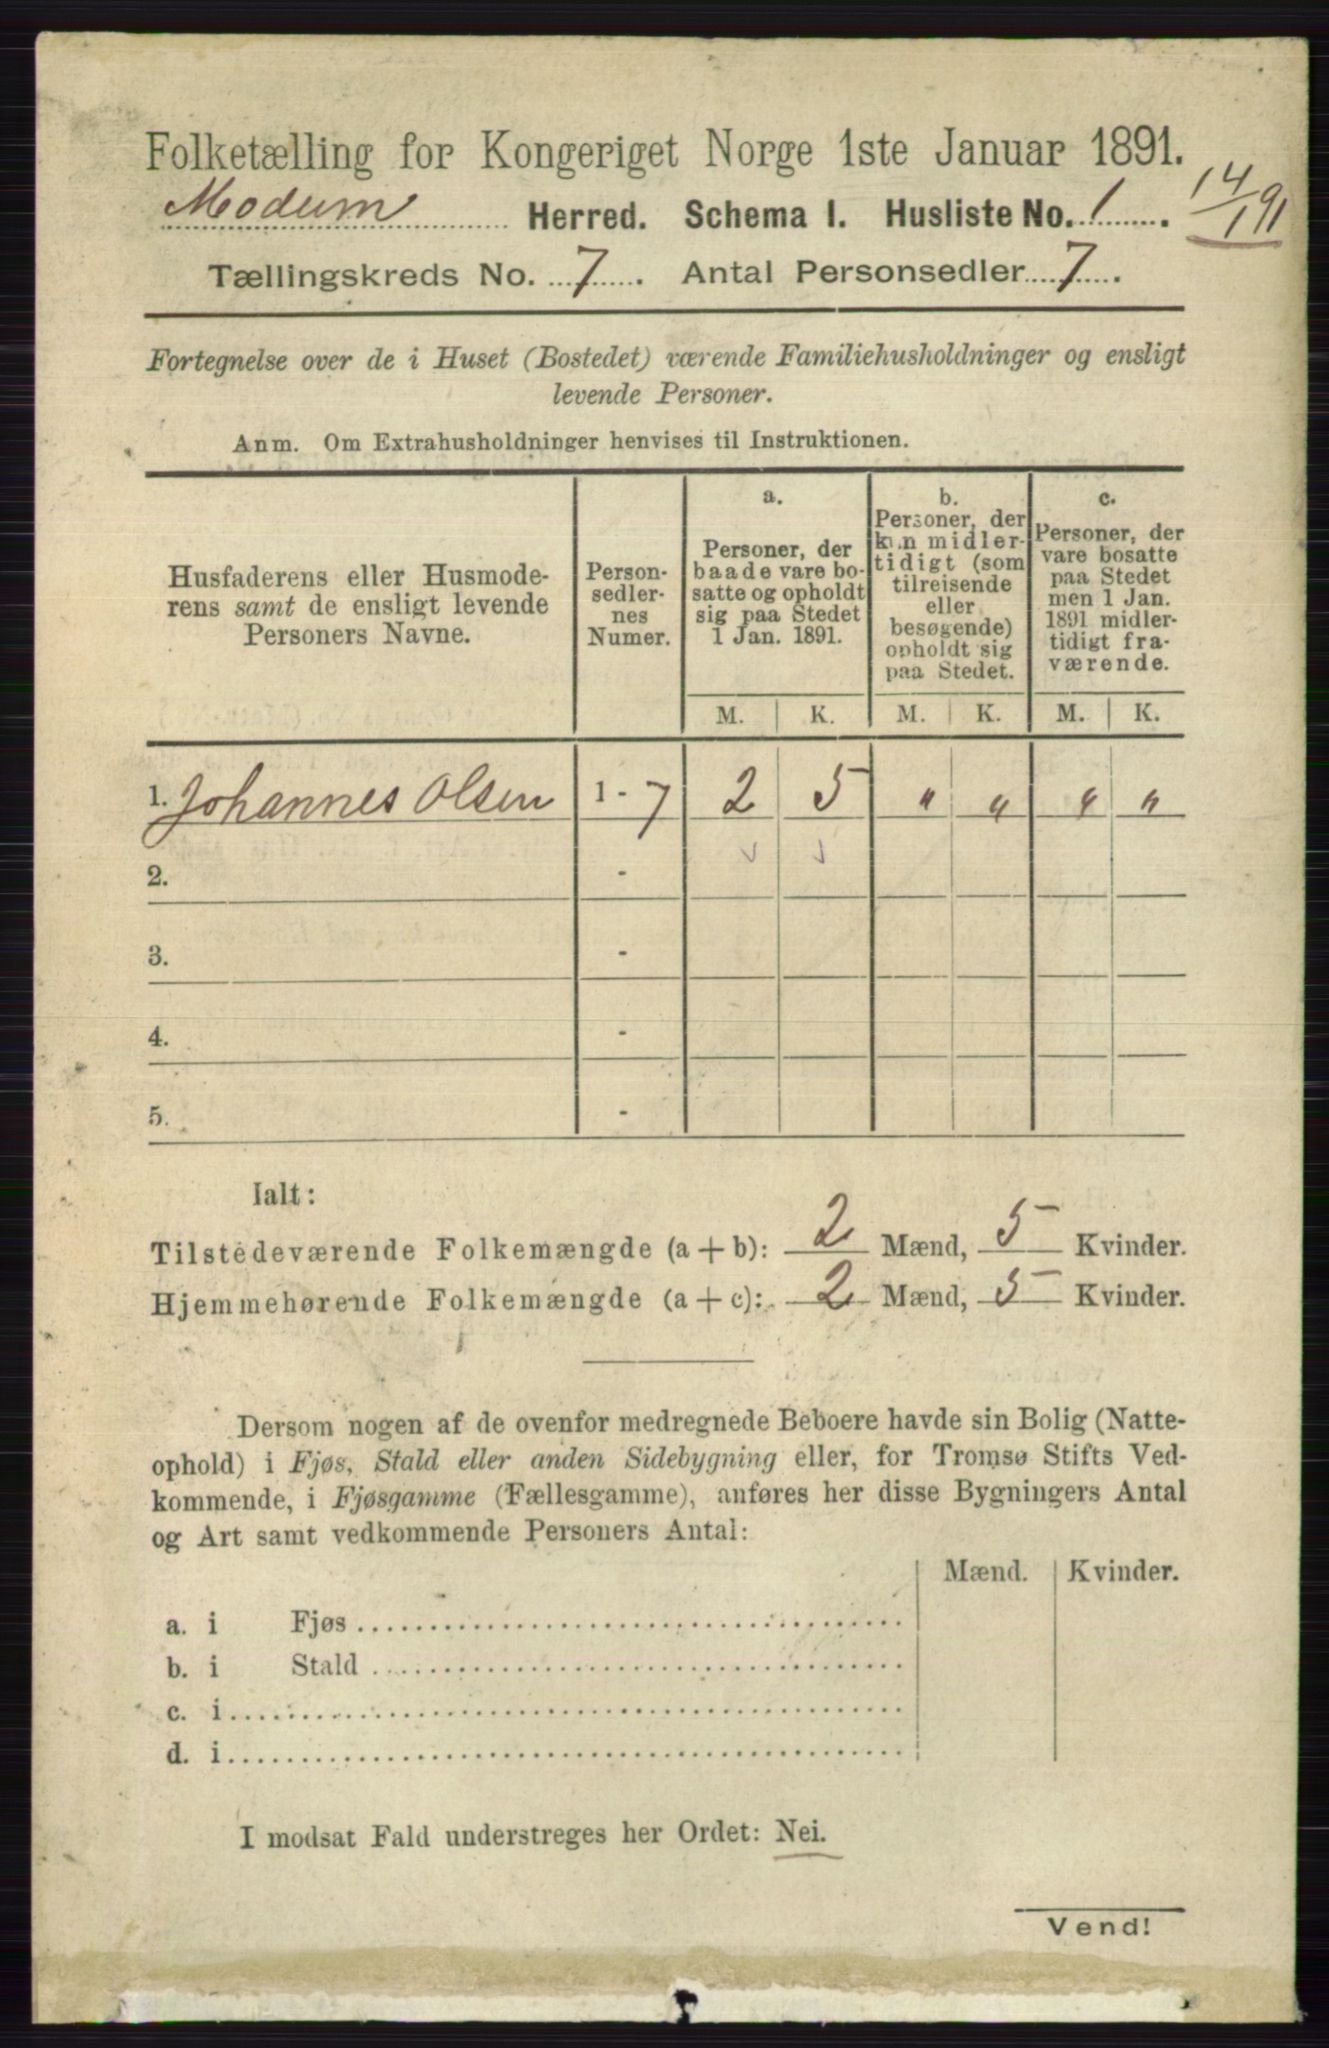 Folketælling for Kongeriget Norge 1ste Januar 1891.
Modum Herred. Schema I. Husliste No. 1. 14/1 91
Tællingskreds No. 7. Antal Personsedler 7.
Fortegnelse over de i Huset (Bostedet) værende Familiehusholdninger og ensligt
levende Personer.
Anm. Om Extrahusholdninger henvises til Instruktionen.
Husfaderens eller Husmode-
rens samt de ensligt levende
Personers Navne.
Person-
sedler-
nes
Numer.
a.
Personer, der
baade vare bo-
satte og opholdt
sig paa Stedet
1 Jan. 1891.
b.
Personer, der
kun midler-
tidigt (som
tilreisende
eller
besøgende)
opholdt sig
paa Stedet.
c.
Personer, der
vare bosatte
paa Stedet
men 1 Jan.
1891 midler-
tidigt fra-
værende.
M. K. M. K. M. K.
1. Johannes Olsen 1 - 7 2 5 " " " "
2. -
3. -
4. -
5. -
Ialt:
Tilstedeværende Folkemængde (a + b): 2 Mænd, 5 Kvinder.
Hjemmehørende Folkemængde (a + c): 2 Mænd, 5 Kvinder.
Dersom nogen af de ovenfor medregnede Beboere havde sin Bolig (Natte-
ophold) i Fjøs, Stald eller anden Sidebygning eller, for Tromsø Stifts Ved-
kommende, i Fjøsgamme (Fællesgamme), anføres her disse Bygningers Antal
og Art samt vedkommende Personers Antal:
Mænd. Kvinder.
a. i Fjøs
b. i Stald
c. i
d. i
I modsat Fald understreges her Ordet: Nei.
Vend!